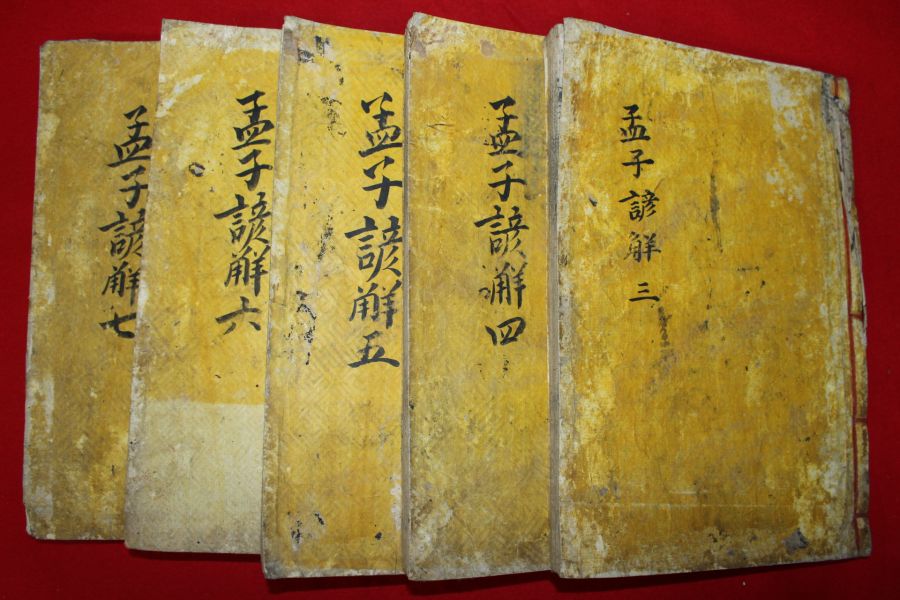 孟子諺觧三
孟子諺觧四
孟子諺觧五
孟子諺觧六
孟子諺觧七